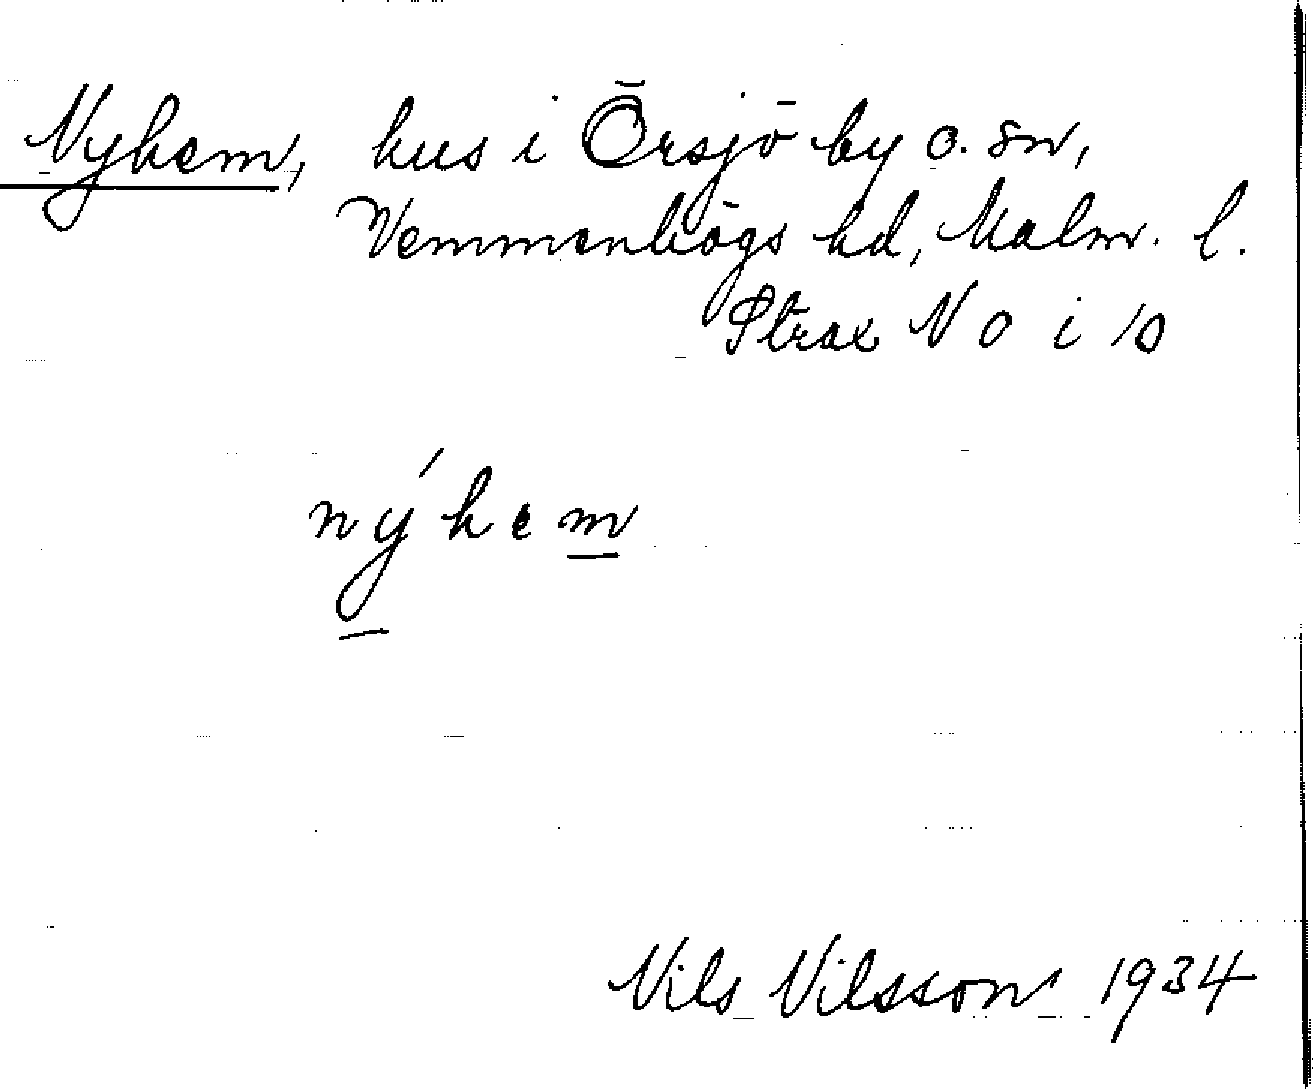 Nyhem, hus i Örsjö by o. sn,
Vemmenhögs hd, Malm. l.
Strax N o i 10
nýhem
Nils Nilsson 1934